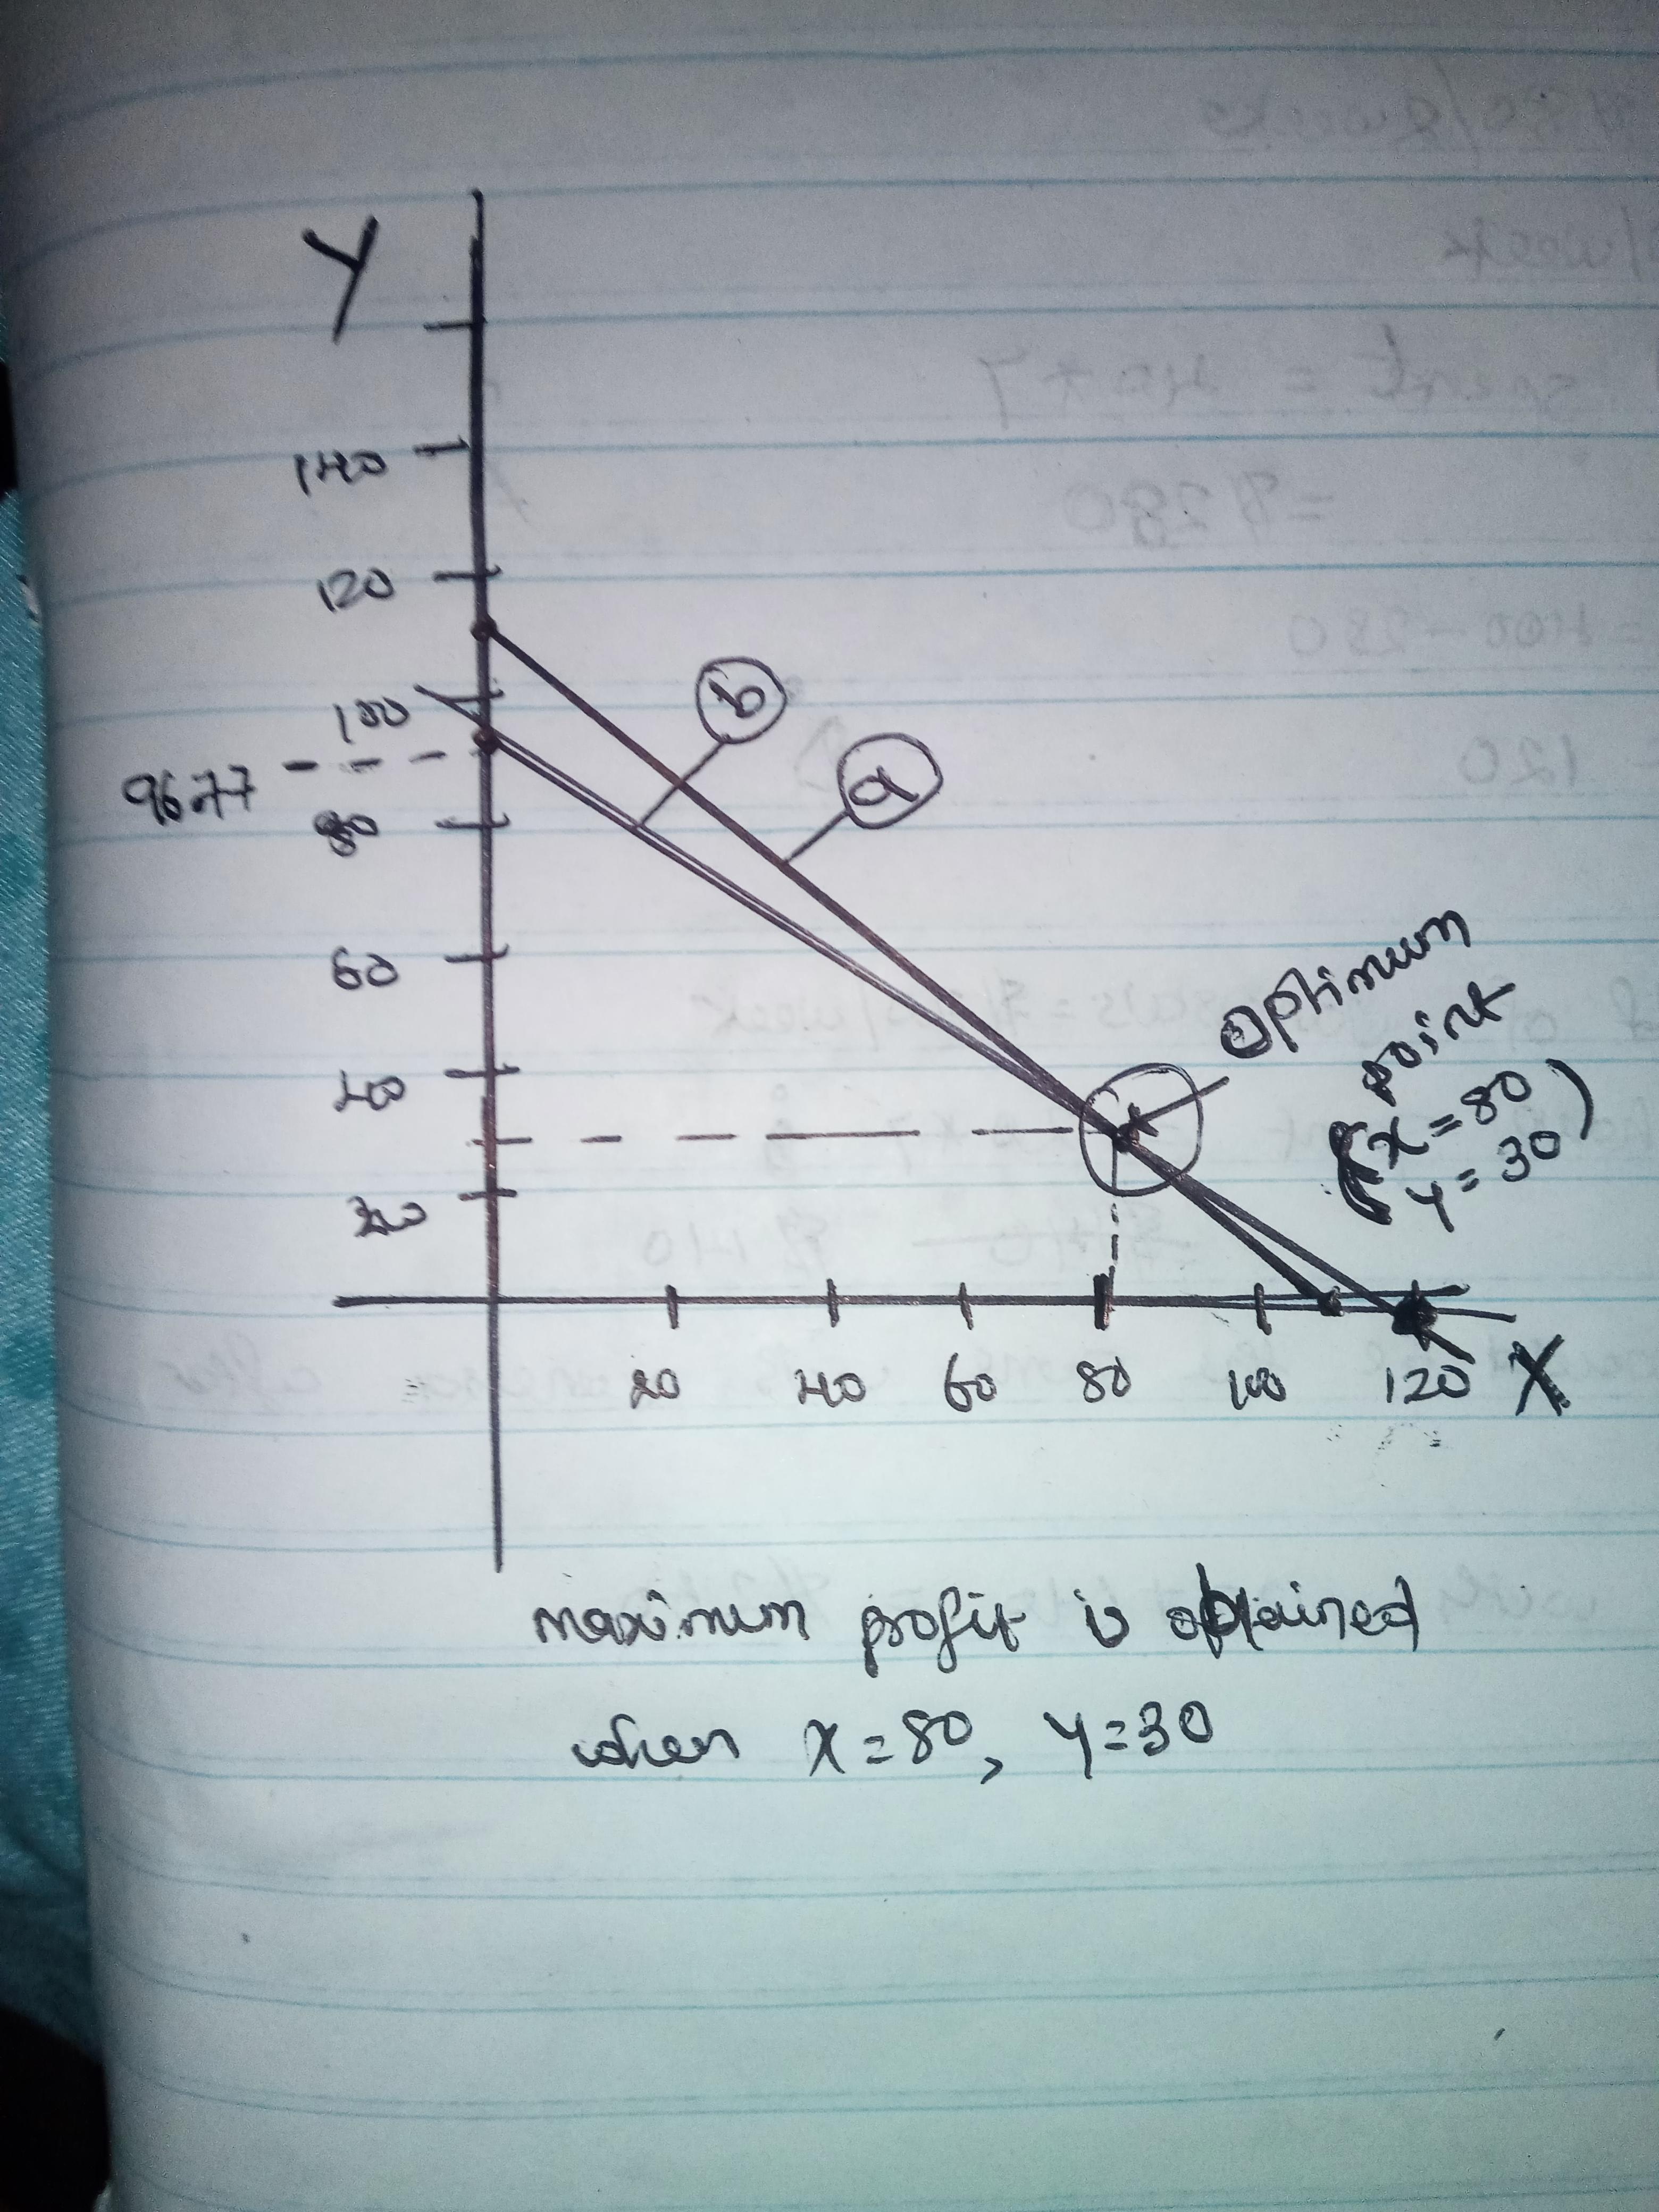 Y
140
120
100
9677
80
60
40
20
b
a
optimum
point
(x=80
y=30)
20 40 60 80 100 120 X
maximum profit is obtained
when x=80, y=30